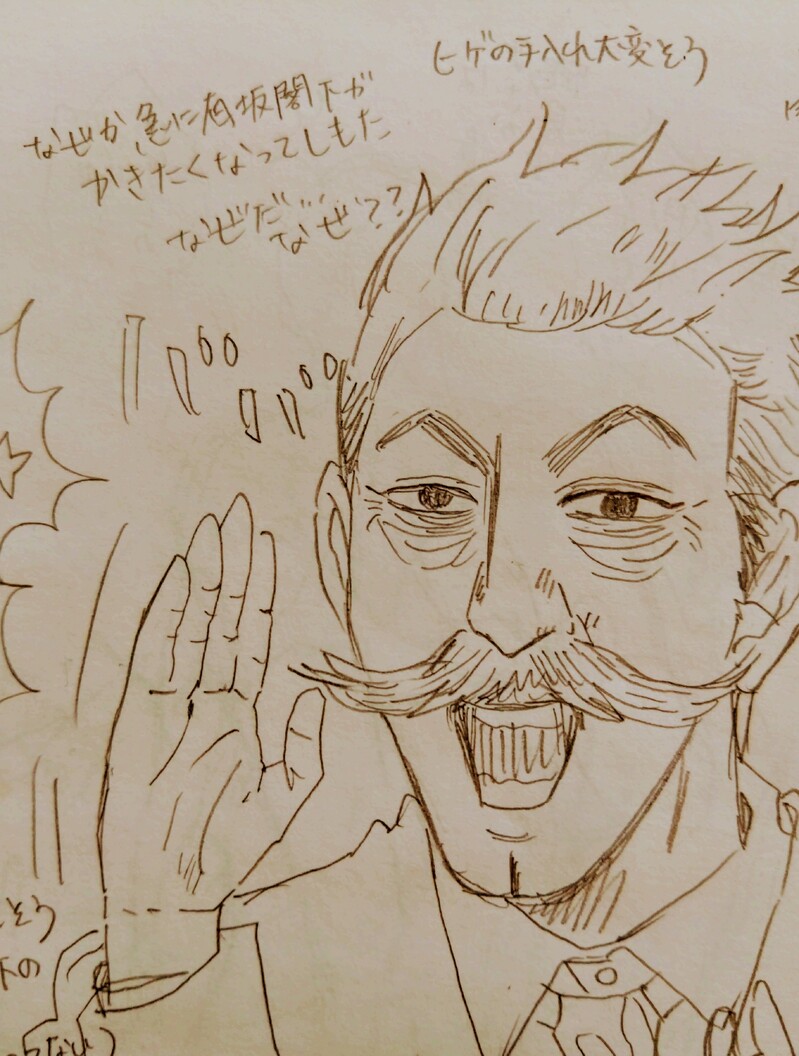 ヒゲの手入れ大変そう
なぜか急に有坂閣下が
かきたくなってしもた
なぜだ…
なぜ??
そう
下の
ない)